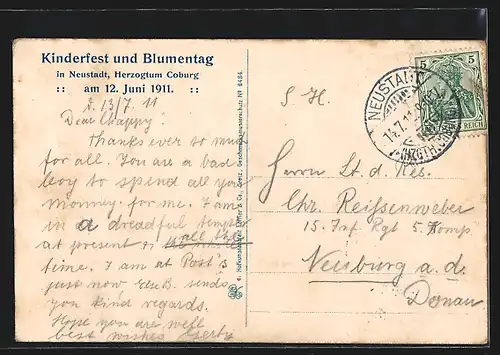 Kinderfest und Blumentag
in Neustadt, Herzogtum Coburg
:: am 12. Juni 1911. ::
d. 13/7. 11
Dear Chappy!
Thanks ever so much
for all. You are a bad
boy to spend all your
monney for me. I am
in a dreadful temper
at present & all the
time. I am at Post's
just now Else B. sends
you kind regards.
Hope you are well
best wishes
S. H.
Herrn Lt. d. Res.
Chr. Reißenweber
15. Inf. Rgt 5. Komp.
Neuburg a. d.
Donau
NEUSTADT
13.7.11
5 5
REICH